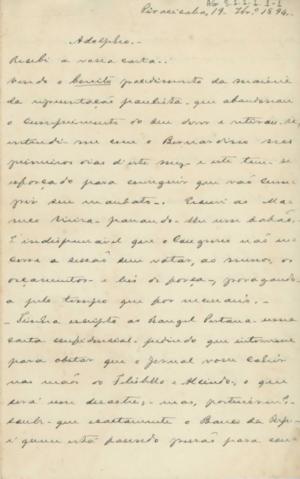 Piracicaba, 19. Fbro. 1894.
Adolpho.
Recebi a vossa carta.
Vendo o bonito procedimento da maioria
da representação paulista, que abandonou
o cumprimento do seu dever e retirou-se,
entendi-me com o Bernardino nos
primeiros dias d'este mez, e este tem-se
esforçado para conseguir que vão cum-
prir seu mandato. Escrevi ao Ma-
noel Vieira, passando-lhe um sabão.
É indispensavel que o Congresso não en-
cerre a sessão sem votar, ao menos, os
orçamentos e leis de força, prorogando-
a pelo tempo que for necessario.
Tinha escripto ao Rangel Pestana uma
carta confidencial, pedindo que interviesse
para obstar que o Jornal vá cahir
nas mãos do e Alcindo, o que
será um desastre, mas,
soube que exactamente o Banco da
é quem está fazendo pressão para